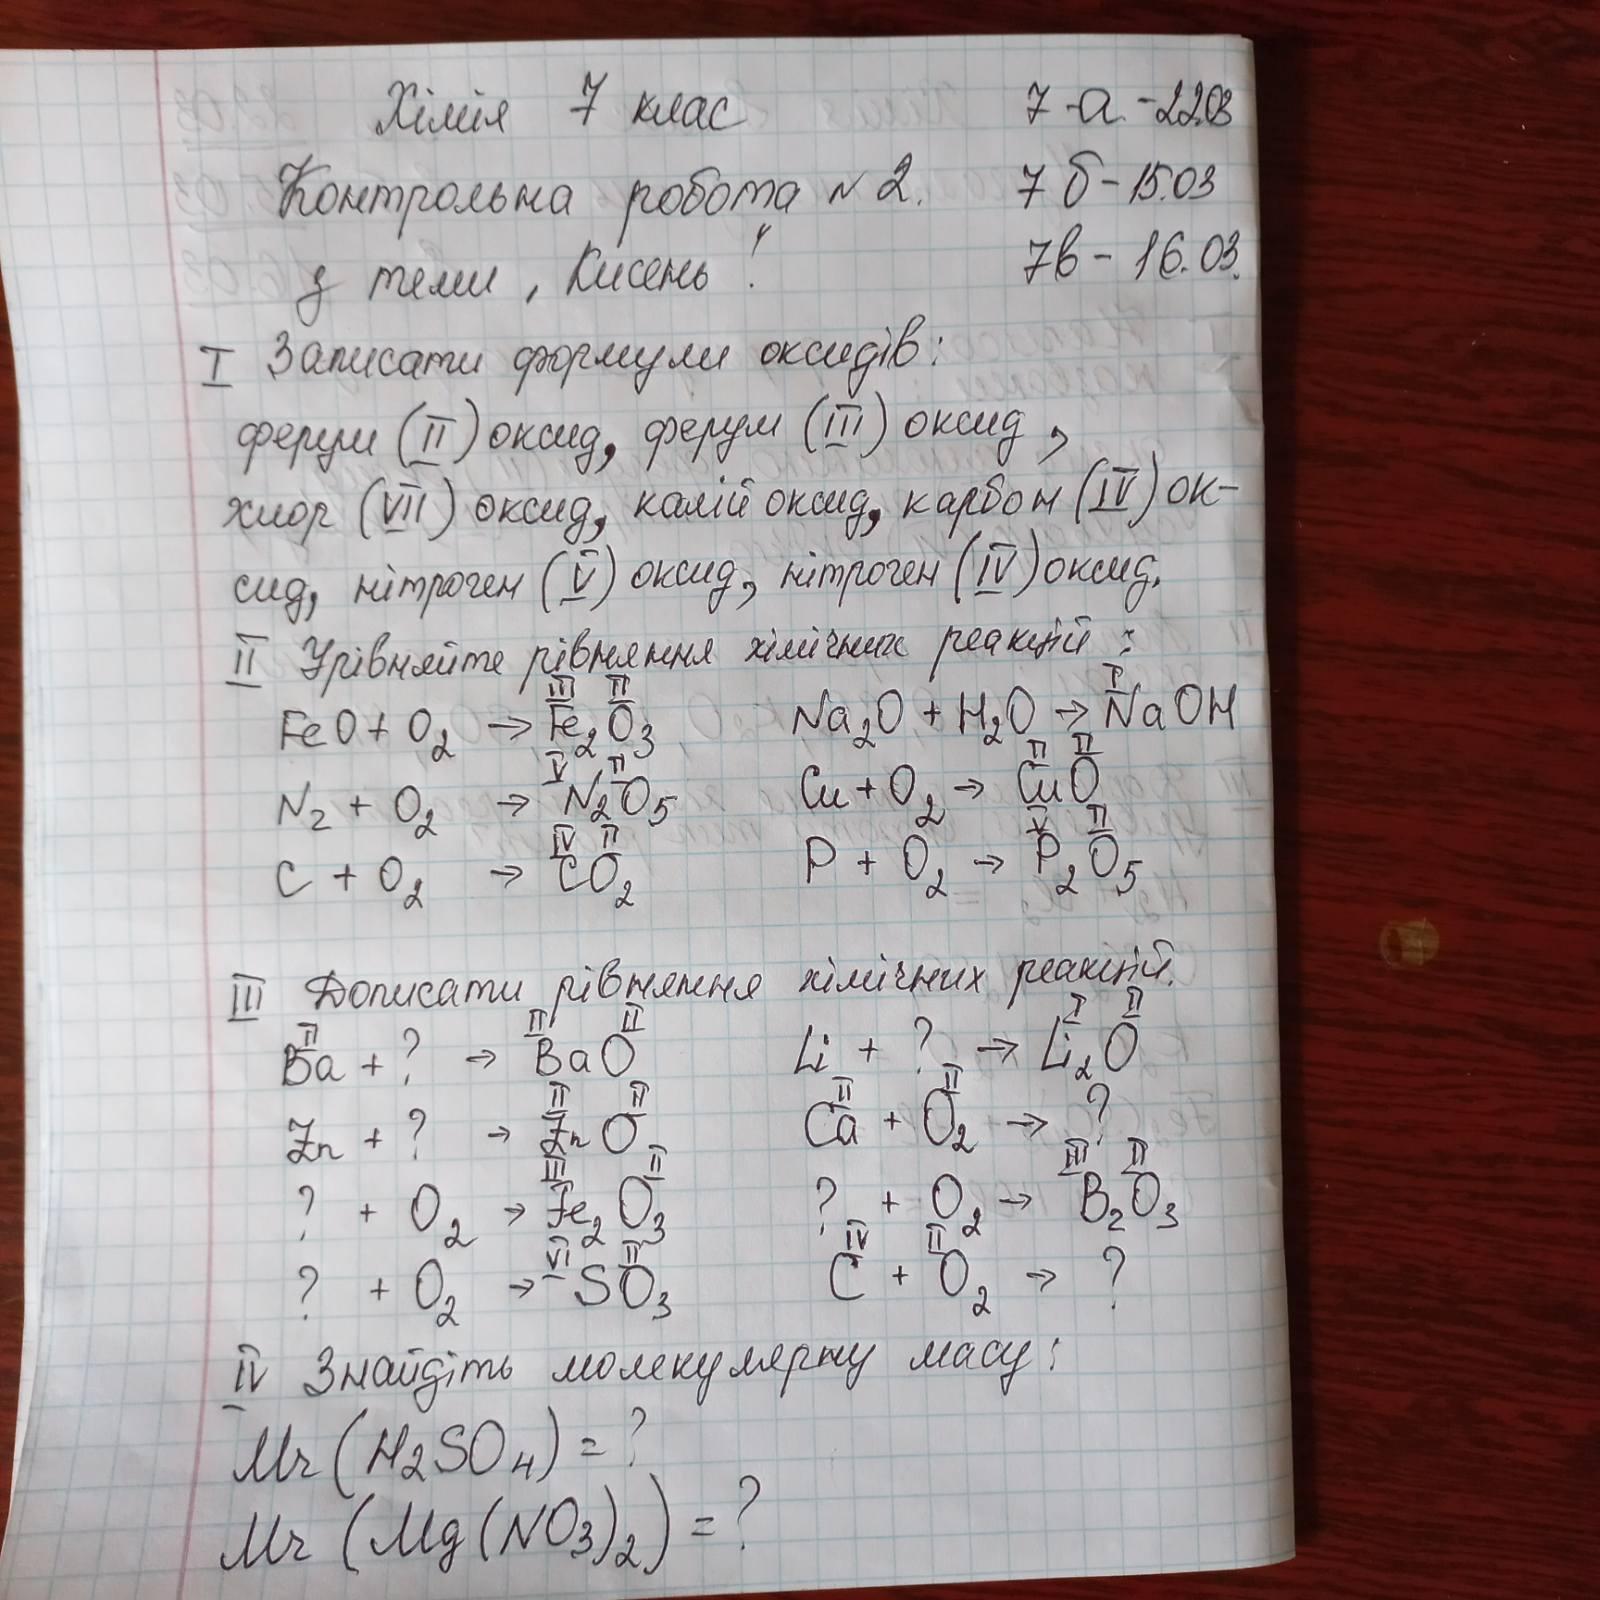 Хімія 7 клас 7-а.-22.03
Контрольна робота №2. 7б-15.03
з теми „Кисень" 7в-16.03.
I Записати формули оксидів:
ферум (II) оксид, ферум (III) оксид,
хлор (VII) оксид, калій оксид, карбон (IV) ок-
сид, нітроген (V) оксид, нітроген (IV) оксид.
II Урівняйте рівняння хімічних реакцій:
III II I
FeO + O2 → Fe2O3 Na2O + H2O → NaOH
V II II II
N2 + O2 → N2O5 Cu + O2 → CuO
IV II V II
C + O2 → CO2 P + O2 → P2O5
III Дописати рівняння хімічних реакцій.
II II II I II
Ba + ? → BaO Li + ? → Li2O
II II II II
Zn + ? → ZnO Ca + O2 → ?
III II III II
? + O2 → Fe2O3 ? + O2 → B2O3
VI II IV II
? + O2 → SO3 C + O2 → ?
IV Знайдіть молекулярну масу:
Mr(H2SO4)=?
Mr(Mg(NO3)2)=?